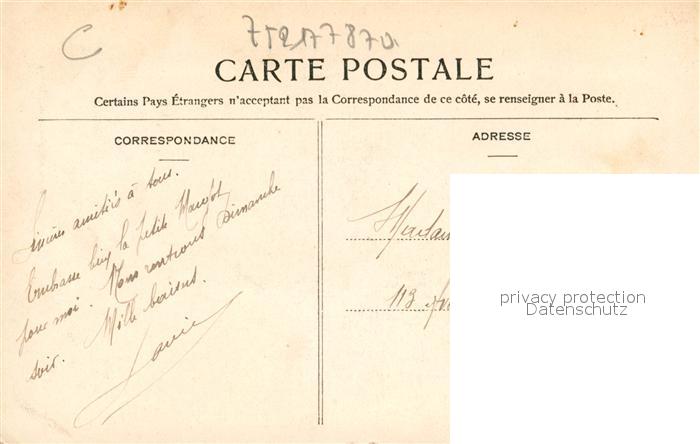 C 75217787a
CARTE POSTALE
Certains Pays Étrangers n'acceptant pas la Correspondance de ce côté, se renseigner à la Poste.
CORRESPONDANCE
Sincères amitiés à tous.
Embrasse bien la petite Margot
pour moi. Nous rentrons Dimanche
soir. Mille baisers.
ADRESSE
Madam
113
privacy protection
Datenschutz